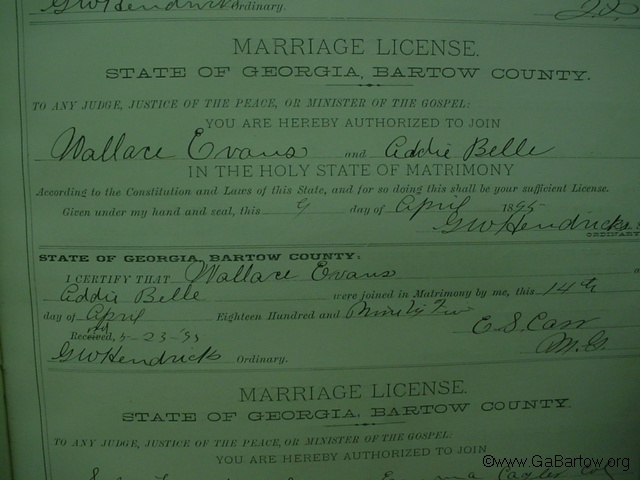 GW Hendricks Ordinary.
MARRIAGE LICENSE.
STATE OF GEORGIA, BARTOW COUNTY.
TO ANY JUDGE, JUSTICE OF THE PEACE, OR MINISTER OF THE GOSPEL:
YOU ARE HEREBY AUTHORIZED TO JOIN
Wallace Evans and Addie Belle
IN THE HOLY STATE OF MATRIMONY
According to the Constitution and Laws of this State, and for so doing this shall be your sufficient License.
Given under my hand and seal, this 9 day of April 1895
GW Hendricks,
ORDINARY
STATE OF GEORGIA, BARTOW COUNTY:
I CERTIFY THAT Wallace Evans
Addie Belle were joined in Matrimony by me, this 14th
day of April Eighteen Hundred and Ninety Five
E. S. Carr
M.G.
Received, 5-23-95
GW Hendricks Ordinary.
MARRIAGE LICENSE.
STATE OF GEORGIA, BARTOW COUNTY.
TO ANY JUDGE, JUSTICE OF THE PEACE, OR MINISTER OF THE GOSPEL:
YOU ARE HEREBY AUTHORIZED TO JOIN
©www.GaBartow.org